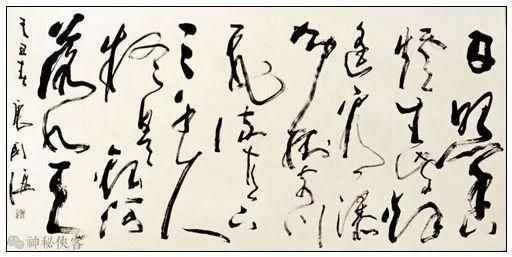 日照香
爐生紫烟
遥看瀑
布挂前川
飛流直下
三千尺
疑是銀河
落九天
神秘俠客